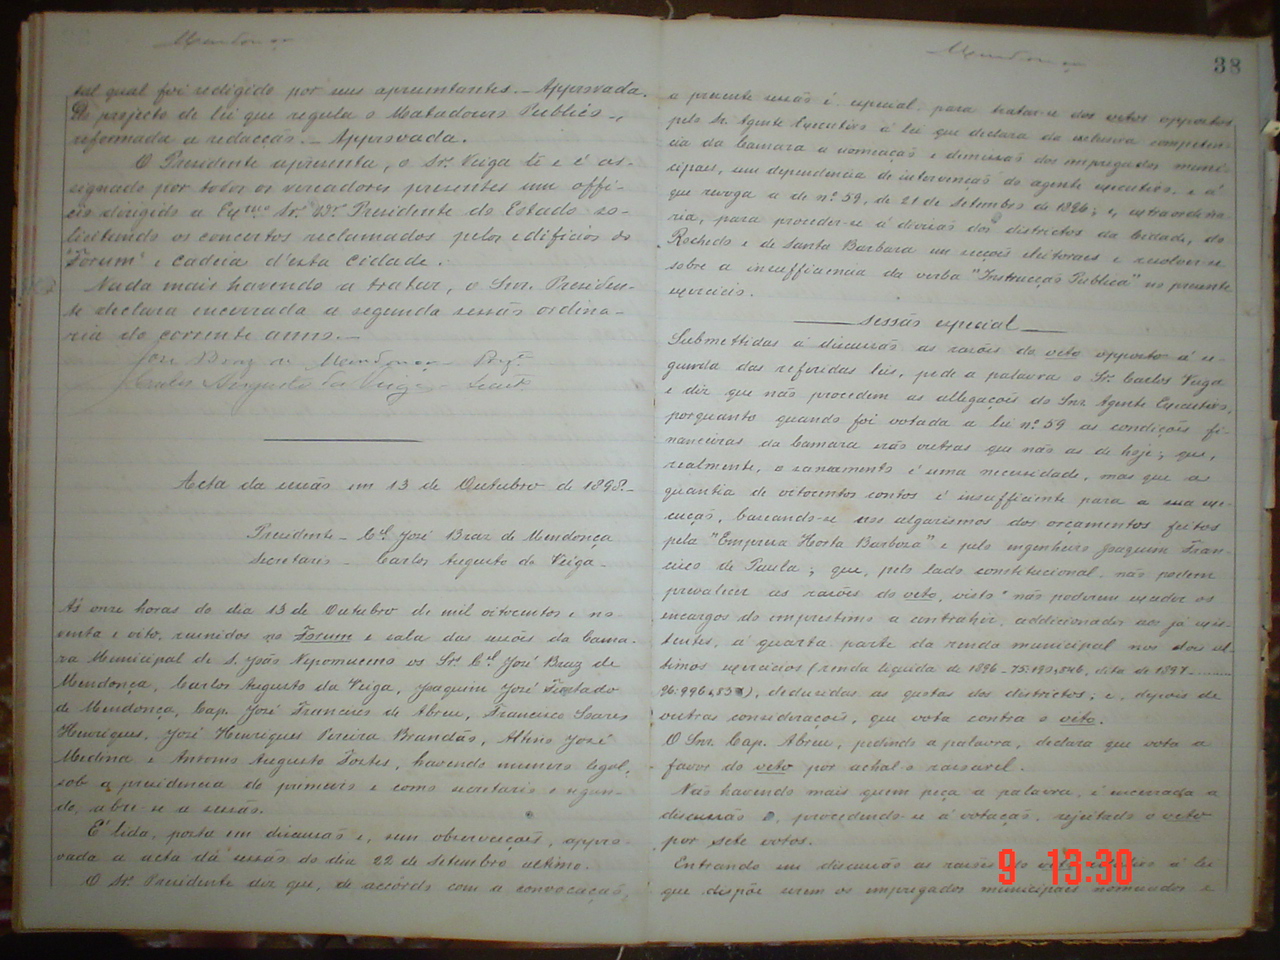 Mendonça
tal qual foi redigido por seus apresentantes. - Approvada.
Do projecto de lei que regula o Matadouro Publico,
reformada a redacção. - Approvada.
O Presidente apresenta, o Sr. Veiga lê e é as-
signado por todos os vereadores presentes um offi-
cio dirigido a Exmo Sr. Dr. Presidente do Estado so-
licitando os concertos reclamados pelos edificios do
"Forum" e cadeia d'esta cidade.
Nada mais havendo a tratar, o Snr. Presiden-
te declara encerrada a segunda sessão ordina-
ria do corrente anno. -
José Braz de Mendonça - Preste
Carlos Augusto da Veiga - Secreto
Acta da sessão em 13 de Outubro de 1898. -
Presidente - Cel. José Braz de Mendonça
Secretario - Carlos Augusto da Veiga -
Ás onze horas do dia 13 de Outubro de mil oitocentos e no-
venta e oito, reunidos no Forum e sala das sessões da Cama-
ra Municipal de S. João Nepomuceno os Srs. Cel. José Braz de
Mendonça, Carlos Augusto da Veiga, Joaquim José Furtado
de Mendonça, Cap. José Francisco de Abreu, Francisco Soares
Henriques, José Henriques Pereira Brandão, Altino José
Medina e Antonio Augusto Fortes, havendo numero legal,
sob a presidencia do primeiro e como secretario o segun-
do, abre-se a sessão.
É lida, posta em discussão e, sem observações, appro-
vada a acta da sessão do dia 22 de Setembro ultimo.
O Sr. Presidente diz que, de accôrdo com a convocação,
Mendonça
38
a presente sessão é especial para tratar-se dos vetos oppostos
pelo Sr. Agente Executivo á lei que declara da exclusiva competen-
cia da Camara a nomeação e demissão dos empregados muni-
cipaes, sem dependencia de intervenção do agente executivo, e á
que revoga a de nº 59, de 21 de Setembro de 1896; e, extraordina-
ria, para proceder-se á divisão dos districtos da Cidade, do
Rochedo e de Santa Barbara em secções eleitoraes e resolver-se
sobre a insufficiencia da verba "Instrucção Publica" no presente
exercicio.
Sessão especial
Submettidas á discussão as razões do veto opposto á se-
gunda das referidas leis, pede a palavra o Sr. Carlos Veiga
e diz que não procedem as allegações do Snr. Agente Executivo,
porquanto quando foi votada a lei nº 59 as condições fi-
nanceiras da Camara erão outras que não as de hoje; que,
realmente, o saneamento é uma necessidade, mas que a
quantia de oitocentos contos é insufficiente para a sua exe-
cução, baseando-se nos algarismos dos orçamentos feitos
pela "Empresa Horta Barbosa" e pelo engenheiro Joaquim Fran-
cisco de Paula; que, pelo lado constitucional, não podem
prevalecer as razões do veto, visto não poderem exceder os
encargos do emprestimo a contrahir, addicionados aos já exis-
tentes, á quarta parte da renda municipal nos dois ul-
timos exercicios (renda liquida de 1896 - 75:190,846, dita de 1897
96:996,85), deduzidas as quotas dos districtos; e, depois de
outras considerações, que vota contra o veto.
O Snr. Cap. Abreu, pedindo a palavra, declara que vota a
favor do veto por achal-o rasoavel.
Não havendo mais quem peça a palavra, é encerrada a
discussão e, procedendo-se á votação, rejeitado o veto
por sete votos.
Entrando em discussão as razões do veto á lei
que dispõe serem os empregados municipaes nomeados e
9 13:30